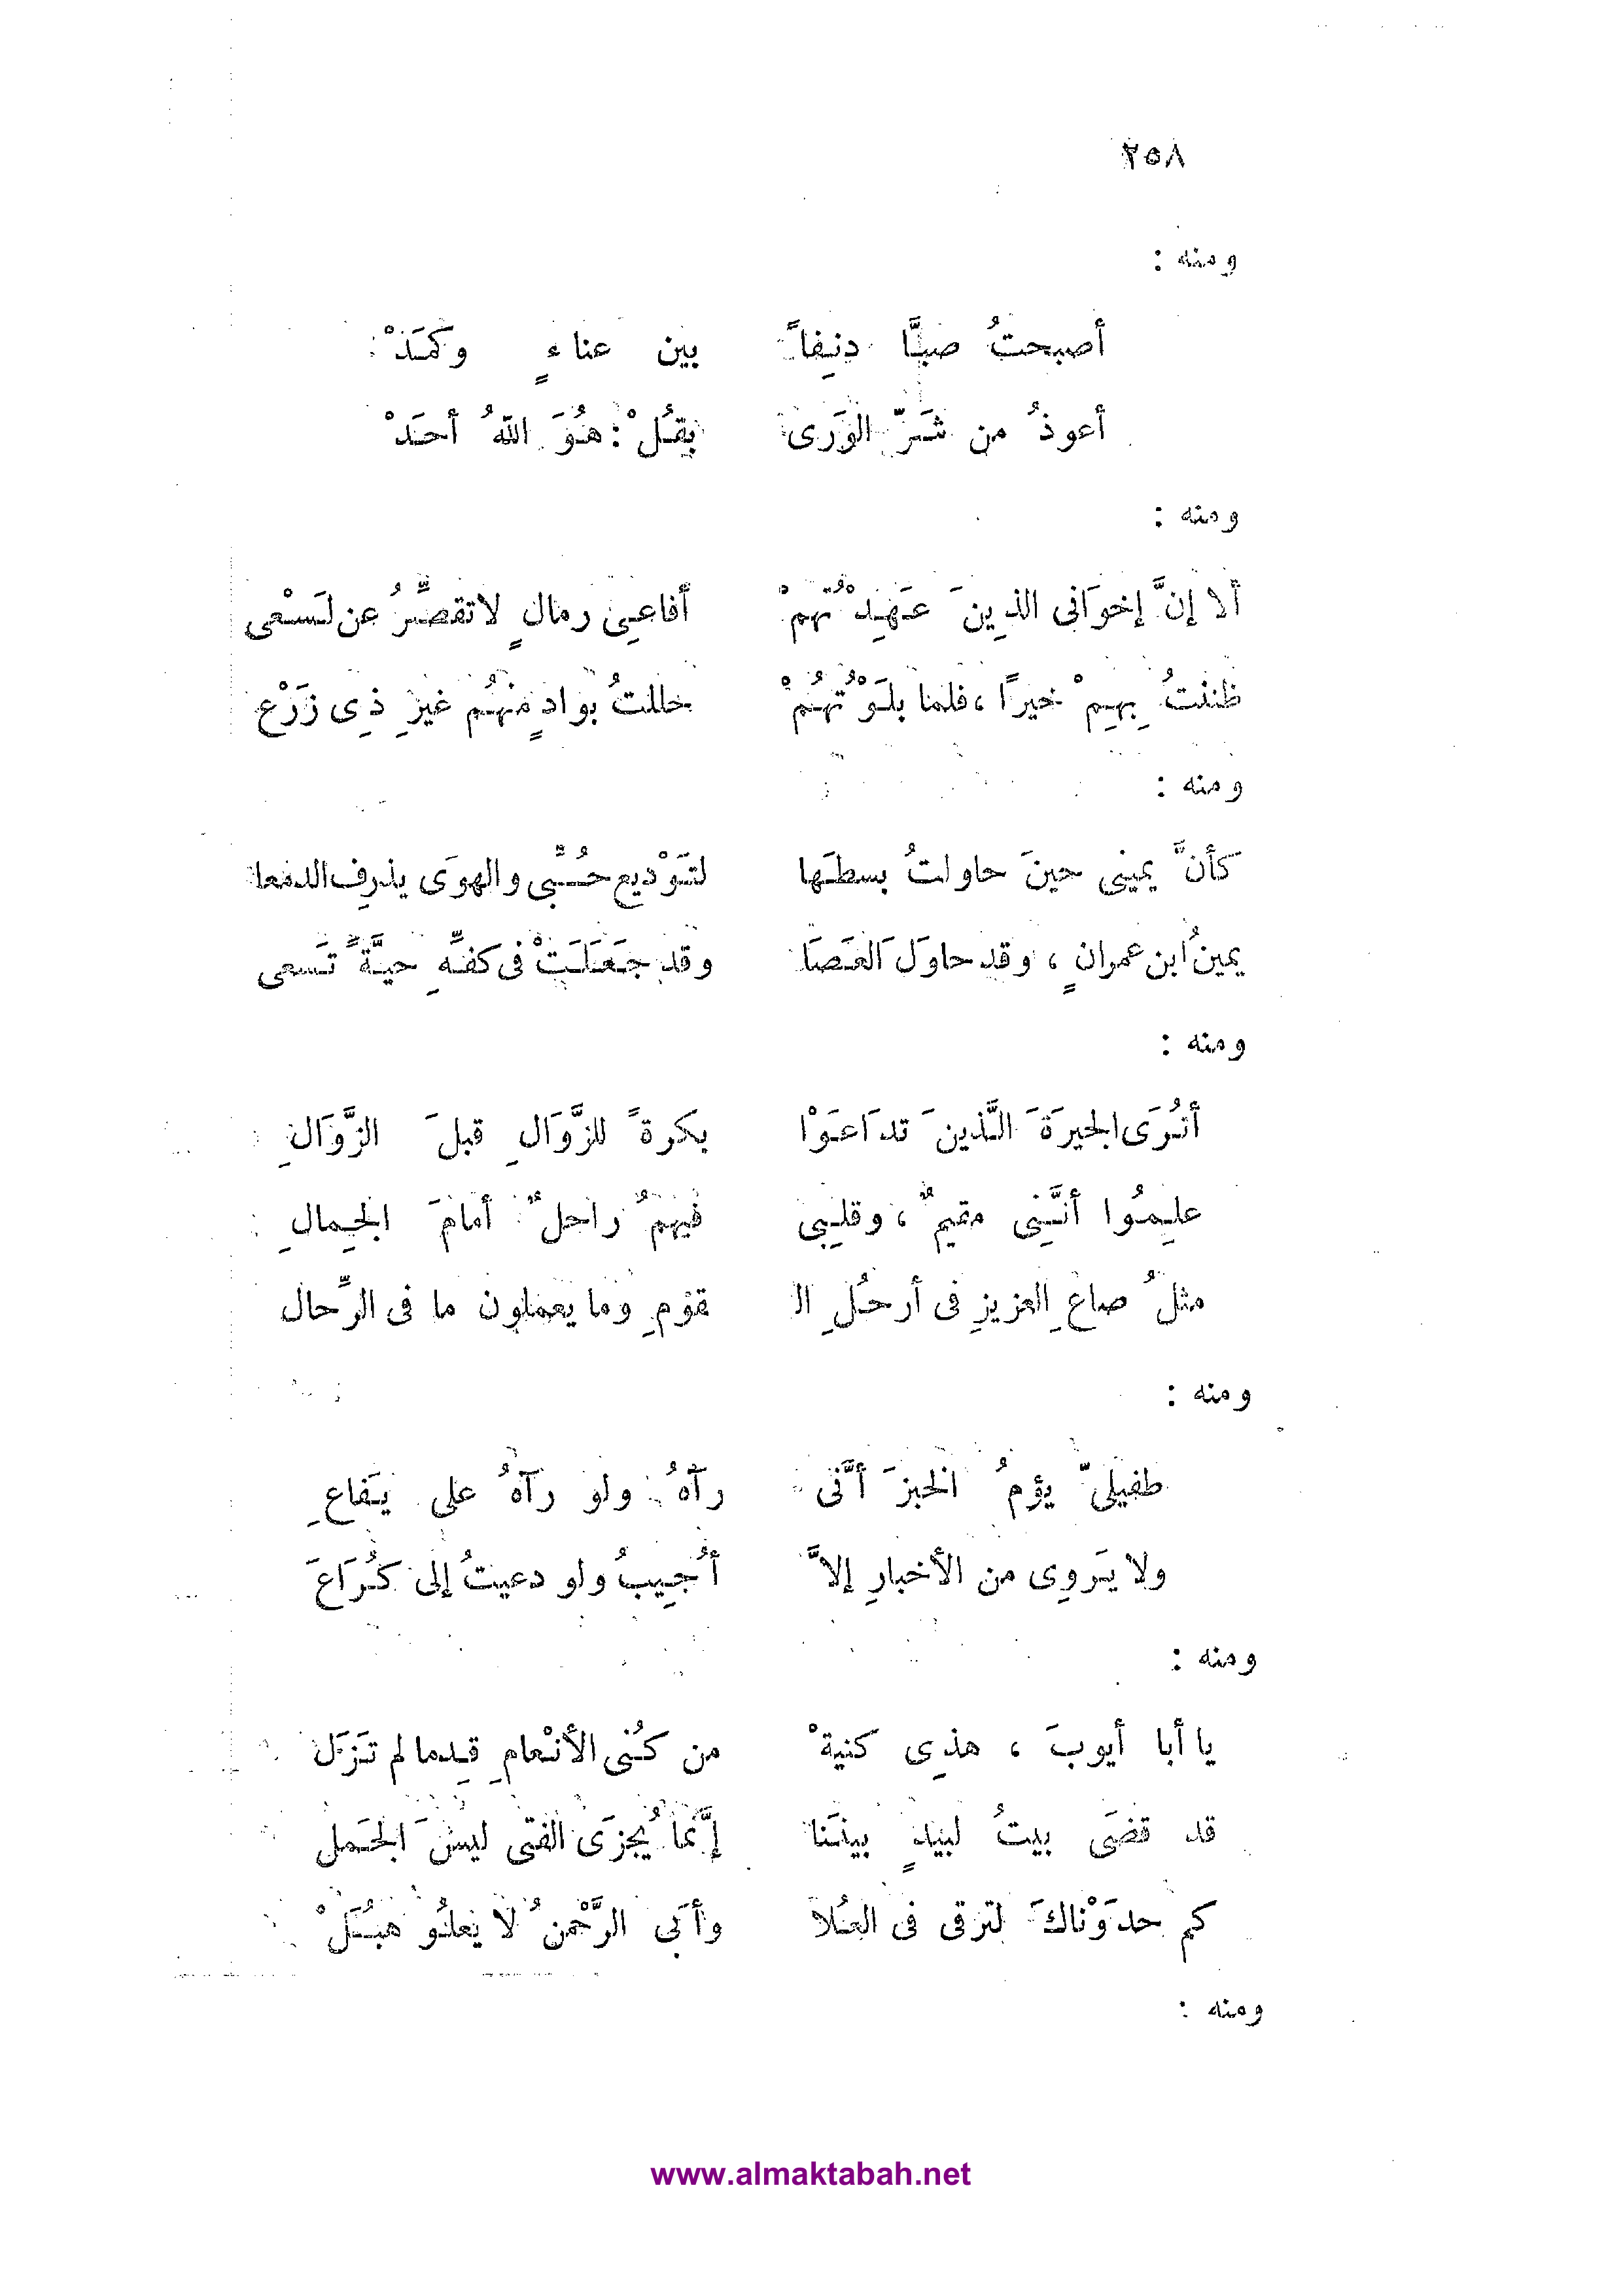 ٢٥٨
ومنه :
أصبحتُ صبًّا دنِفاً بين عناءٍ وكمَدْ
أعوذُ من شَرّ الوَرى بقُلْ : هُوَ اللهُ أحَدْ
ومنه :
ألا إنَّ إخوَانى الذِينَ عَهِدْتُهُمْ أفاعِى رمالٍ لا تقصِّرُ عن لَسْعى
ظننتُ بِهِمْ خيرًا ، فلما بلَوْتُهُمْ حللتُ بوادٍ منهُم غيرِ ذِى زَرْع
ومنه :
كأنَّ يمينى حينَ حاولتُ بسطَها لتَوْديع حُبِّى والهوَى يذرِف الدمعا
يمينُ ابن عمرانٍ ، وقد حاوَلَ العَصَا وقد جَعَلَتْ فى كفِّهِ حيَّةً تَسعى
ومنه :
أتُرَى الجيرَةَ الَّذينَ تدَاعَوْا بكرةً للزَّوَالِ قبلَ الزَّوَالِ
علِمُوا أنَّنِى مقيمٌ ، وقلبِى فيهمُ راحلٌ أمامَ الجِمالِ
مثلُ صاعِ العزيزِ فى أرحُلِ الـ قوْمِ وما يعملون ما فى الرِّحال
ومنه :
طفيلىّ يؤمُ الخبزَ أنَّى رآهُ ولو رآهُ على يَفاعِ
ولا يَروِى من الأخبارِ إلاَّ أُجِيبُ ولو دعيتُ إلى كُرَاعَ
ومنه :
يا أبا أيوبَ ، هذِى كنيةْ من كُنى الأنْعامِ قِدما لم تَزَل
قد قضَى بيتُ لبيدٍ بينَنا إنَّما يُجزَى الفتى ليسَ الجَمل
كم حدوْناكَ لترقى فى العُلا وأبَى الرَّحْمنُ لا يَعلُو هبُلْ
ومنه :
www.almaktabah.net